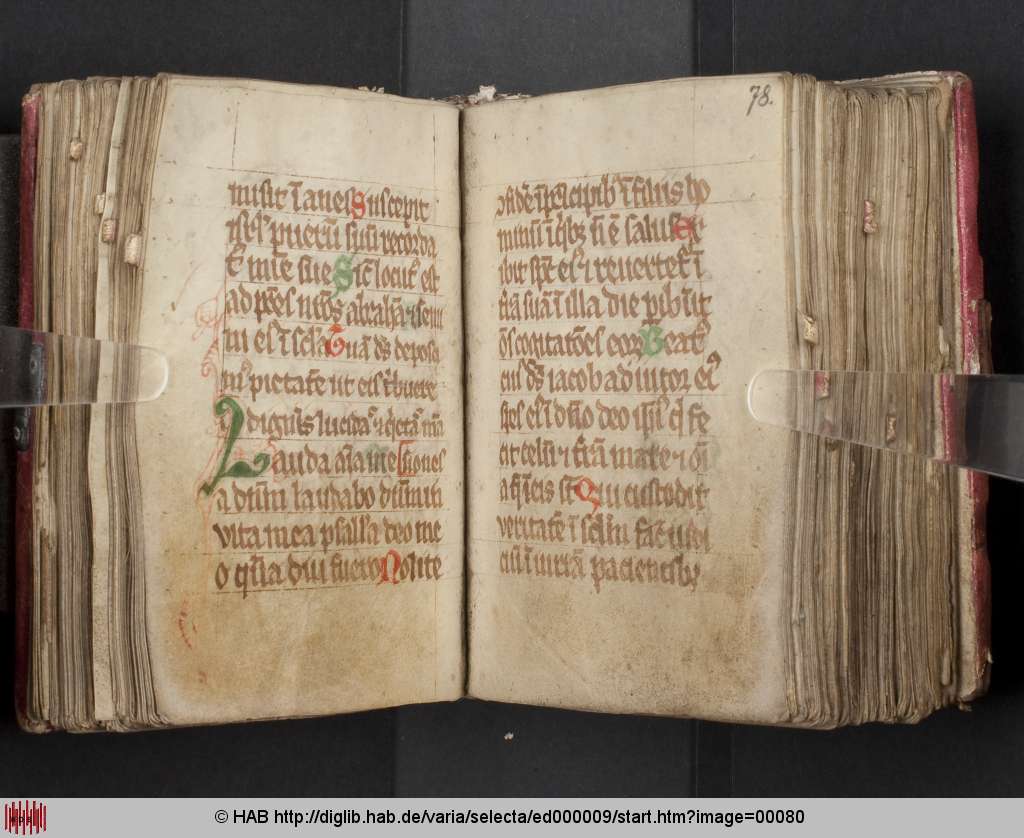 misit i͞anes Suscepit
isrl' pueru͞ suu͞ recorda
t᷒ mi͞e sue Sic͞ locut᷒ est
ad pr͞es nr͞os abraha͞ ⁊ semi
ni ei᷒ i͞ scl'a
pietate ut eis
Lauda aı͞a mea
dn͞m laudabo dn͞m in
vita mea psalla͞ deo me
o q͞diu fuero Nolite
78.
͞ofide͞ i͞ pri͞cipib᷒ i͞ filiis ho
minu͞ i͞ qib᷒ no͞ e͞ salus Ex
ibit sp͞c ei᷒ ⁊ reuertet᷒ i͞
t͞ra͞ sua͞ i͞ illa die pib͞ut
o͞s cogitato͞es eor᷒ Beat᷒
cui᷒ ds͞ iacob adiutor ei᷒
spes ei᷒ i͞ dn͞o deo ip͞i᷒ q͞ fe
cit celu͞ ⁊ t͞ra͞ mare ⁊ oi͞
a q͞ i͞ eis st͞ Qui custodit
veritate͞ i͞ sclm͞ fac͞ iudi
ciu͞ i͞iuria͞ pacientib᷒
© HAB http://diglib.hab.de/varia/selecta/ed000009/start.htm?image=00080